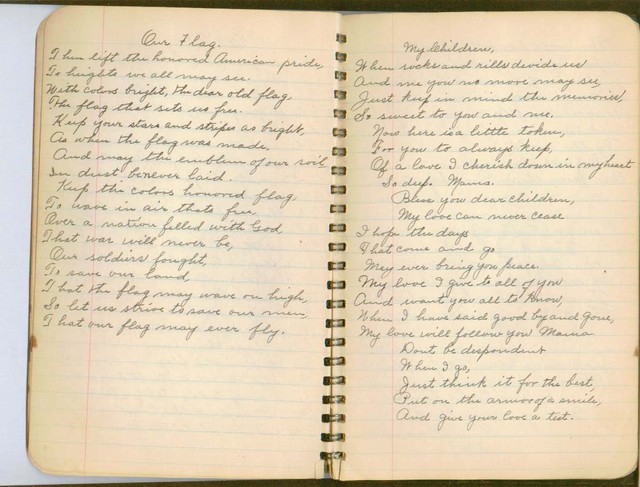 Our Flag.
Then lift the honored American pride,
To heights we all may see.
With colors bright, the dear old flag,
The flag that sets us free.
Keep your stars and stripes as bright,
As when the flag was made,
And may the emblem of our soil
In dust be never laid.
Keep the colors honored flag,
To wave in air thats free,
Over a nation filled with God
That war will never be,
Our soldiers fought,
To save our land,
That the flag may wave on high,
So let us strive to save our men,
That our flag may ever fly.
My Children,
When rocks and rills divide us
And me you no more may see,
Just keep in mind the memories,
So sweet to you and me.
Now here is a little token,
For you to always keep,
Of a love I cherish down in my heart
So deep. Mama.
Bless you dear children,
My love can never cease
I hope the days
That come and go
May ever bring you peace.
My love I give to all of you
And want you all to know,
When I have said good by and gone,
My love will follow you Mama
Dont be despondent
When I go,
Just think it for the best,
Put on the armor of a smile,
And give your love a test.